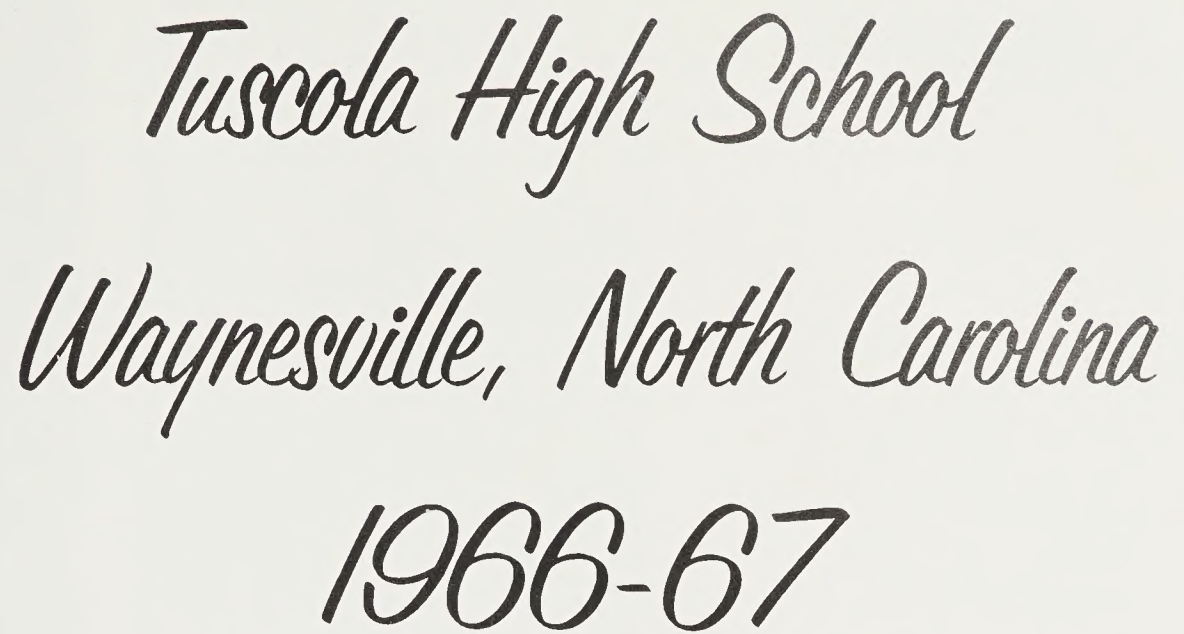 Tuscola High School
Waynesville, North Carolina
1966-67